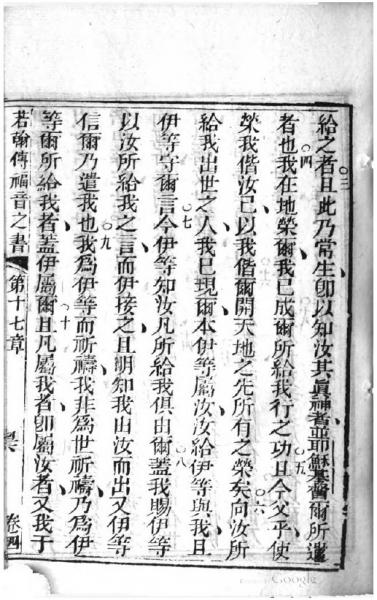 給之者三且此乃常生即以知汝其眞神者並耶穌基督爾所遣
者也四我在地榮爾我已成爾所給我行之功五且今父乎使
榮我偕汝己以我偕爾開天地之先所有之榮矣六向汝所
給我出世之人我已現爾本伊等屬汝汝給伊等與我且
伊等守爾言七今伊等知汝凡所給我俱由爾八蓋我賜伊等
以汝所給我之言而伊接之且明知我由汝而出又伊等
信爾乃遣我也九我爲伊等而祈禱我非爲世祈禱乃爲伊
等爾所給我者蓋伊屬爾十且凡屬我者卽屬汝者又我于
若翰傳福音之書 第十七章 卷四
Google